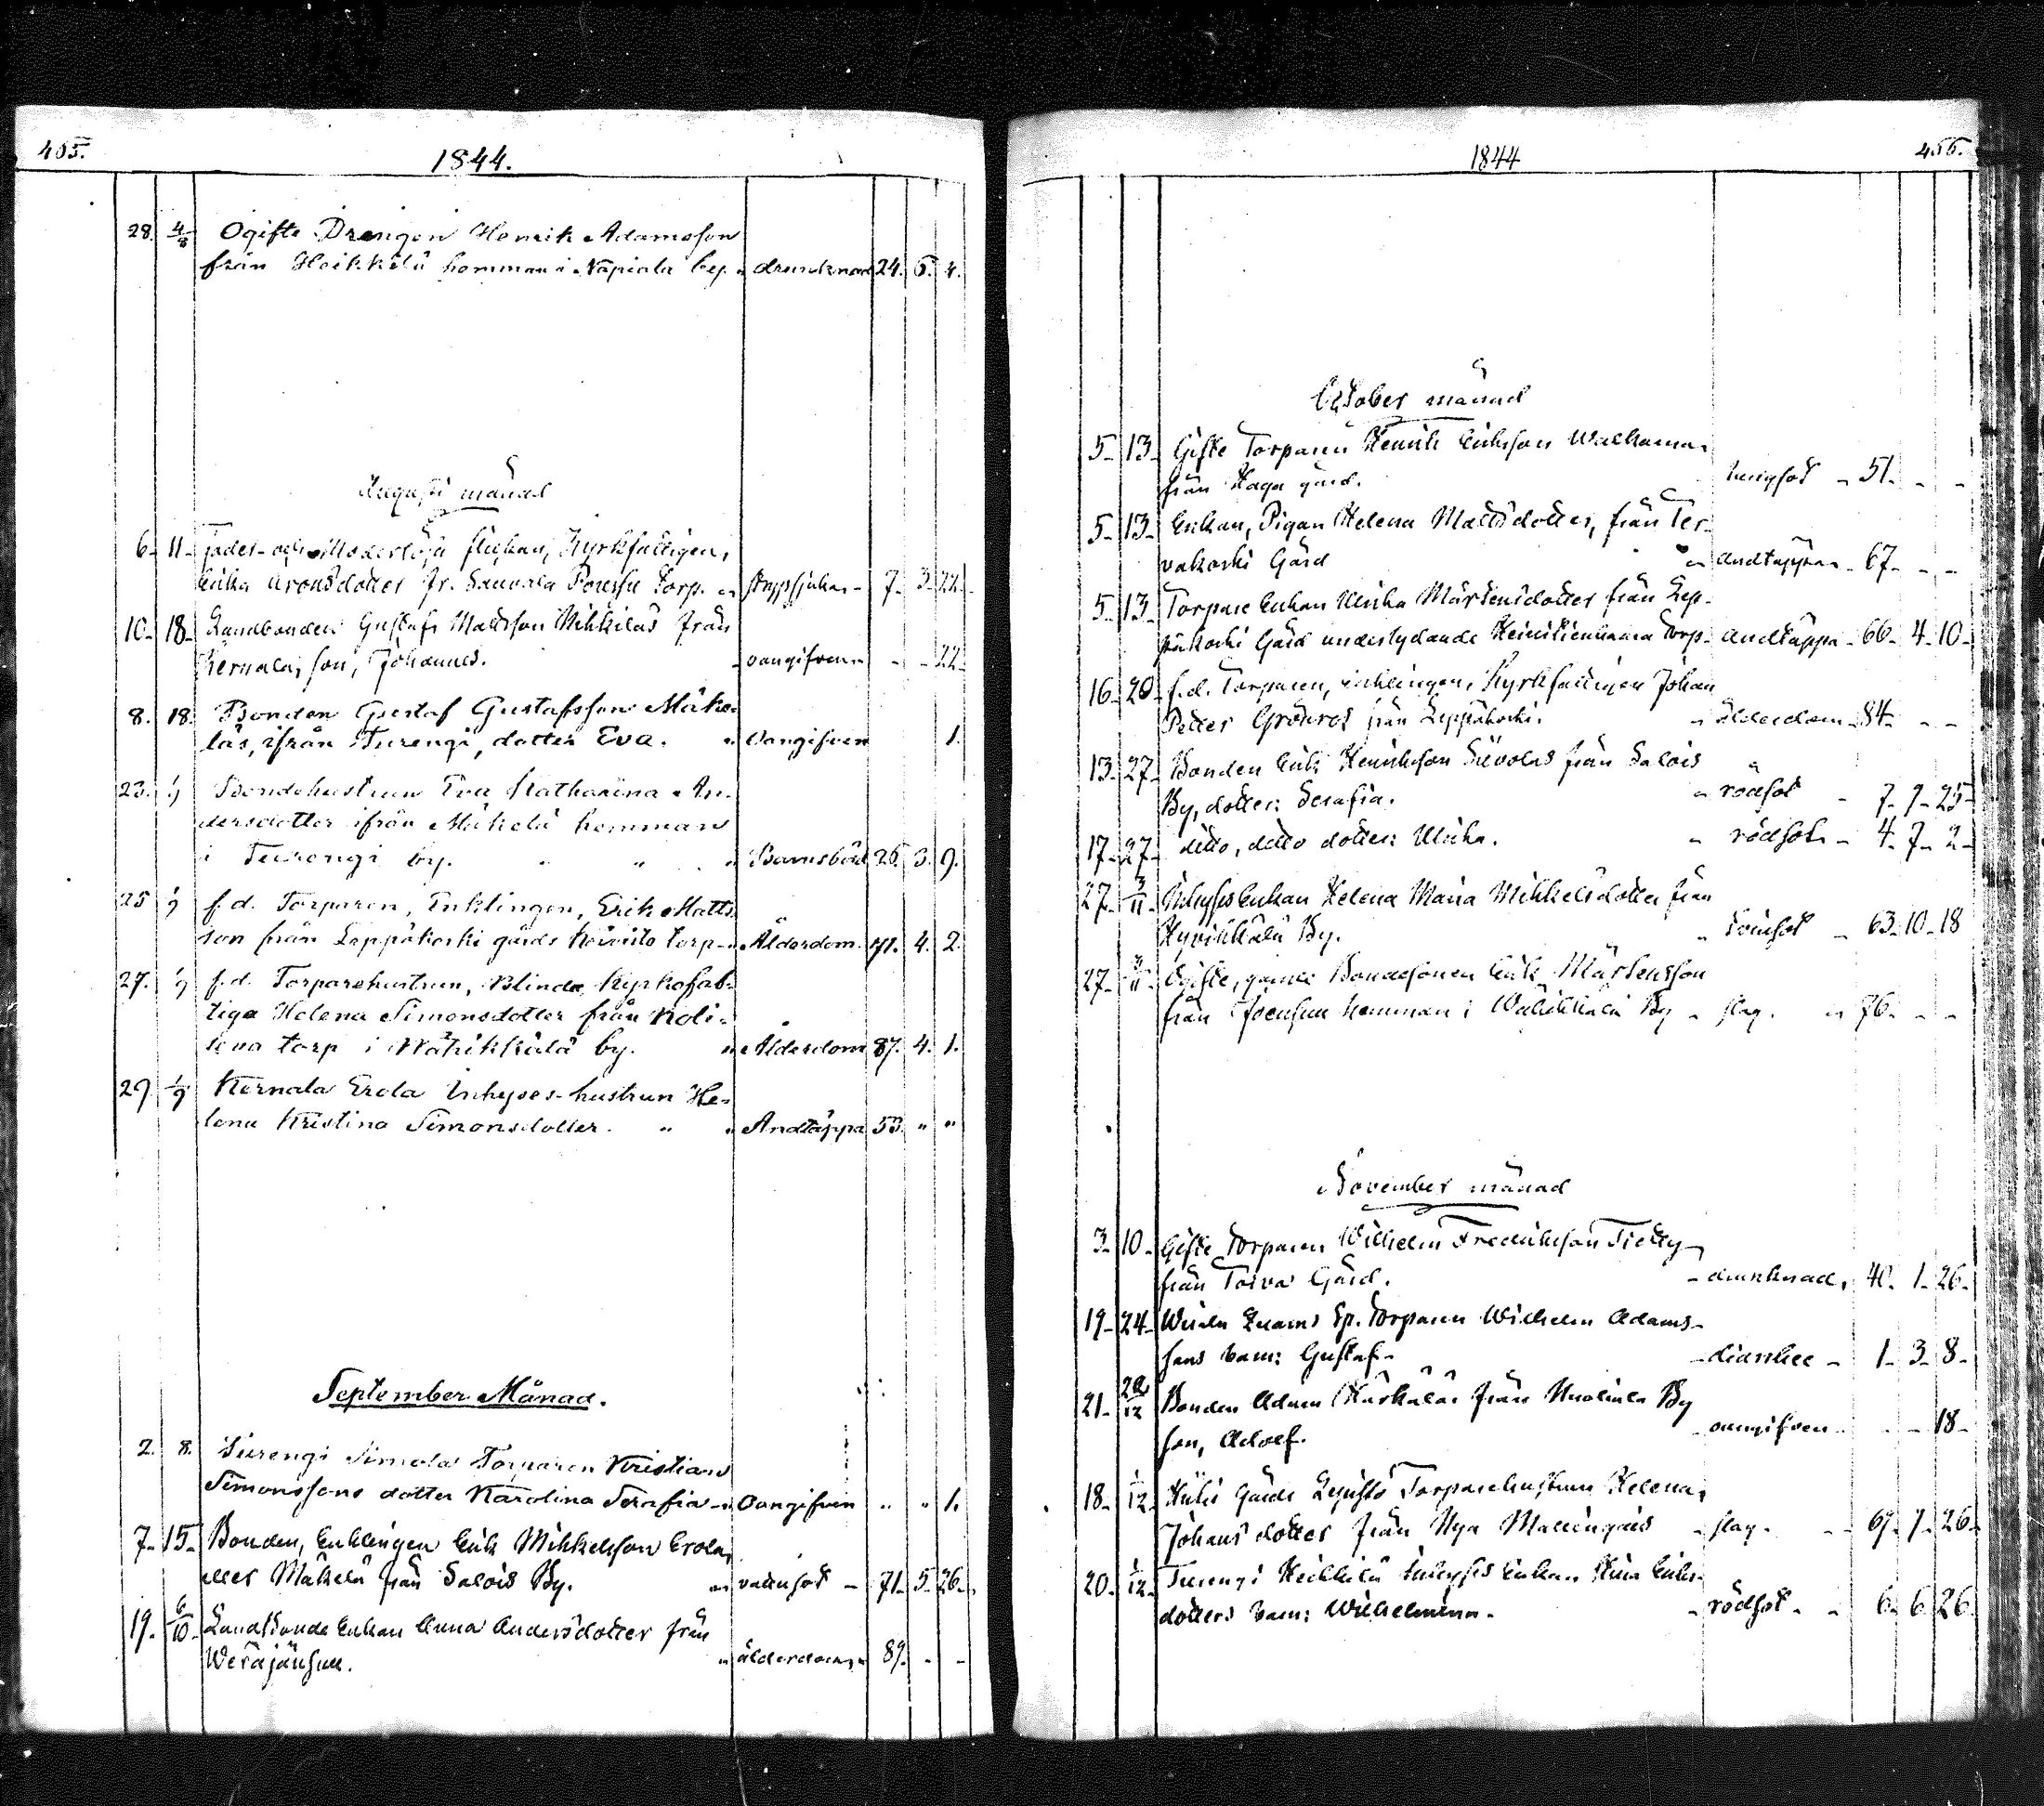 405.
1844.
28. 4/8 Ogifte Drengen Henrik Adamsson
från Heikkilä hemman i Napiala by. " drunknad 24. 6. 4.
Augusti månad
6- 11- Fader- och Moderlösa flickan, Kyrkfattigen,
Erika Aronsdotter fr. Sauvala Torp. - 7- 3- 22-
10- 18- Landbonden Gustaf Mattsson Mikkilas från
Kernala, son, Johannes. - oangifven - - - 22-
8. 18. Bonden Gustaf Gustafsson Mäke-
läs, ifrån Turengi, dotter Eva. " Oangifven 1.
23. 1/9 Bondehustrun Eva Katharina An-
dersdotter ifrån Mäkelä hemman
i Turengi by. " " " Barnsbörd 26 3. 9.
25 1/9 f.d. Torparen, Enklingen, Erik Matts-
son från Leppäkoski gårds Koivisto torp - " Ålderdom. 71. 4. 2.
27. 1/9 f.d. Torparehustrun, Blinda, Kyrkofat-
tiga Helena Simonsdotter från Koli-
torp i Wähikkälä by. " Ålderdom 87. 4. 1.
29. 1/9 Kernala Erola Inhyses-hustrun He-
lena Kristina Simonsdotter. " " Andtäppa 53. " "
September Månad.
2. 8. Turengi Simola Torparen Kristian
Simonssons dotter Karolina Serafia - " Oangifven " " 1.
7- 15- Bonden, Enklingen Erik Mikkelsson Erola,
eller Mäkelä från Salois By. " vattusot - 71- 5- 26-
19. 6/10 Landbonde Enkan Anna Andersdotter från
Weräjänsuu. " ålderdom " 89. - -
1844
456.
October månad
5- 13- Gifte Torparen Henrik Eriksson
från Haga gård. lungsot - 51. - -
5- 13- Enkan, Pigan Helena Mattsdotter, från Ter-
vakoski Gård " andtäppa - 67- - -
5- 13 Torpare Enkan Ulrika Mårtensdotter från Lep-
päkoski Gård underlydande Torp- andtäppa - 66- 4- 10-
16- 20- f.d. Torparen, enklingen, Kyrkfattigen Johan
Petter Grönros från Leppäkoski. - ålderdom - 84- - -
13- 27- Bonden Erik Henriksson från Salois
By, dotter: Serafia. " rödsot - 7- 7- 25-
17- 27- ditto, ditto dotter: Ulrika. " rödsot - 4- 7- 2-
27- 3/11 Inhyses Enkan Helena Maria Mikkelsdotter från
Hyvikkälä By. - 63- 10- 18
27- 3/11 Ogifte, gamle Bondesonen Erik Mårtensson
från hemman i Wähikkälä By - slag. " 76- - -
November månad
3- 10- Gifte Torparen Wilhelm Fredriksson
från Toiva Gård. - drunknad, 40- 1- 26-
19- 24- Torparen Wilhelm Adams-
sons barn: Gustaf- - diarrhee - 1- 3- 8-
21- Bonden Adam från By
son, Adolf. - oangifven - - - 18-
18- 1/12 Gårds Torparehustrun Helena
Johansdotter från Nya - slag. - 69- 7- 26-
20- 1/12 Turengi Heikkilä Inhyses Enkan Eriks-
dotters barn: Wilhelmina. - rödsot. - 6- 6- 26-